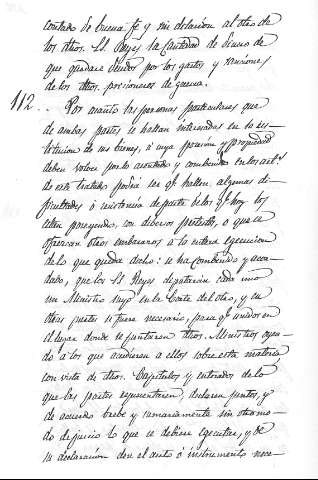 contado de buena fe y sin dilacion al otro de
los dhos. SS. Reyes la Cantidad de dinero de
que quedare deudor por los gastos y raciones
de los dhos. prisioneros de guerra.
112. . . Por cuanto las personas particulares que
de ambas partes se hallan interesadas en la res-
titucion de sus bienes, á cuya posesion y propiedad
deben volver por lo acordado y combenido en los art.s
de este tratado podrá ser q.e hallen algunas di-
ficultades ó resistencia de parte de los q.e hoy los
estan poseyendo, con diversos pretestos, ó que se
ofrezcan otros embarazos á la entera egecucion
de lo que queda dicho: se ha combenido y acor-
dado, que los SS. Reyes diputarán cada uno
un Ministro suyo en la Corte del otro, y en
otras partes si fuere necesario, para q.e unidos en
el lugar donde se juntaren dhos. Ministros oyen-
do á los que acudieren á ellos sobre esta materia
con vista de dhos. Capitulos y enterados de lo
que las partes representaren, declaren juntos, y
de acuerdo brebe y sumariamente sin otro mo-
do de juicio lo que se debiere egecutar, y de
su declaracion den el auto ó instrumento nece-